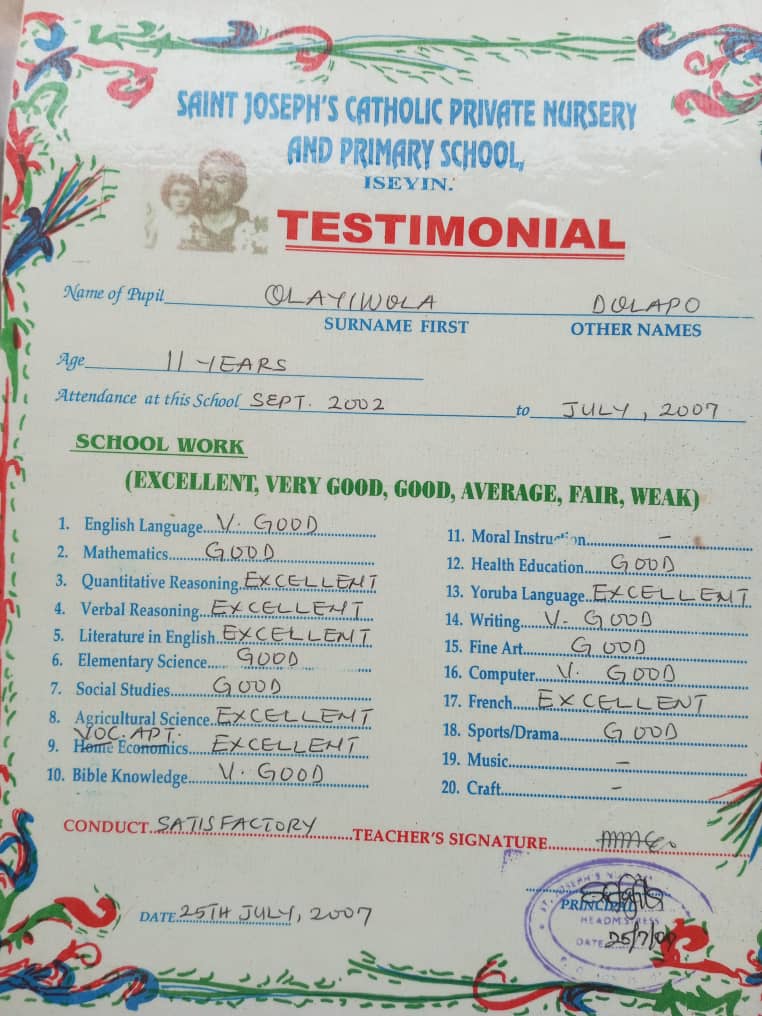 SAINT JOSEPH'S CATHOLIC PRIVATE NURSERY
AND PRIMARY SCHOOL,
ISEYIN.
TESTIMONIAL
Name of Pupil OLAYIWOLA DOLAPO
SURNAME FIRST OTHER NAMES
Age 11 YEARS
Attendance at this School SEPT. 2002 to JULY, 2007
SCHOOL WORK
(EXCELLENT, VERY GOOD, GOOD, AVERAGE, FAIR, WEAK)
1. English Language V. GOOD
2. Mathematics GOOD
3. Quantitative Reasoning EXCELLENT
4. Verbal Reasoning EXCELLENT
5. Literature in English EXCELLENT
6. Elementary Science GOOD
7. Social Studies GOOD
8. Agricultural Science EXCELLENT
VOC. APT.
9. Home Economics EXCELLENT
10. Bible Knowledge V. GOOD
11. Moral Instruction –
12. Health Education GOOD
13. Yoruba Language EXCELLENT
14. Writing V. GOOD
15. Fine Art GOOD
16. Computer V. GOOD
17. French EXCELLENT
18. Sports/Drama GOOD
19. Music –
20. Craft –
CONDUCT SATISFACTORY TEACHER'S SIGNATURE
PRINCIPAL
ST. JOSEPH'S
HEADMISTRESS
DATE 25/7/07
DATE 25TH JULY, 2007